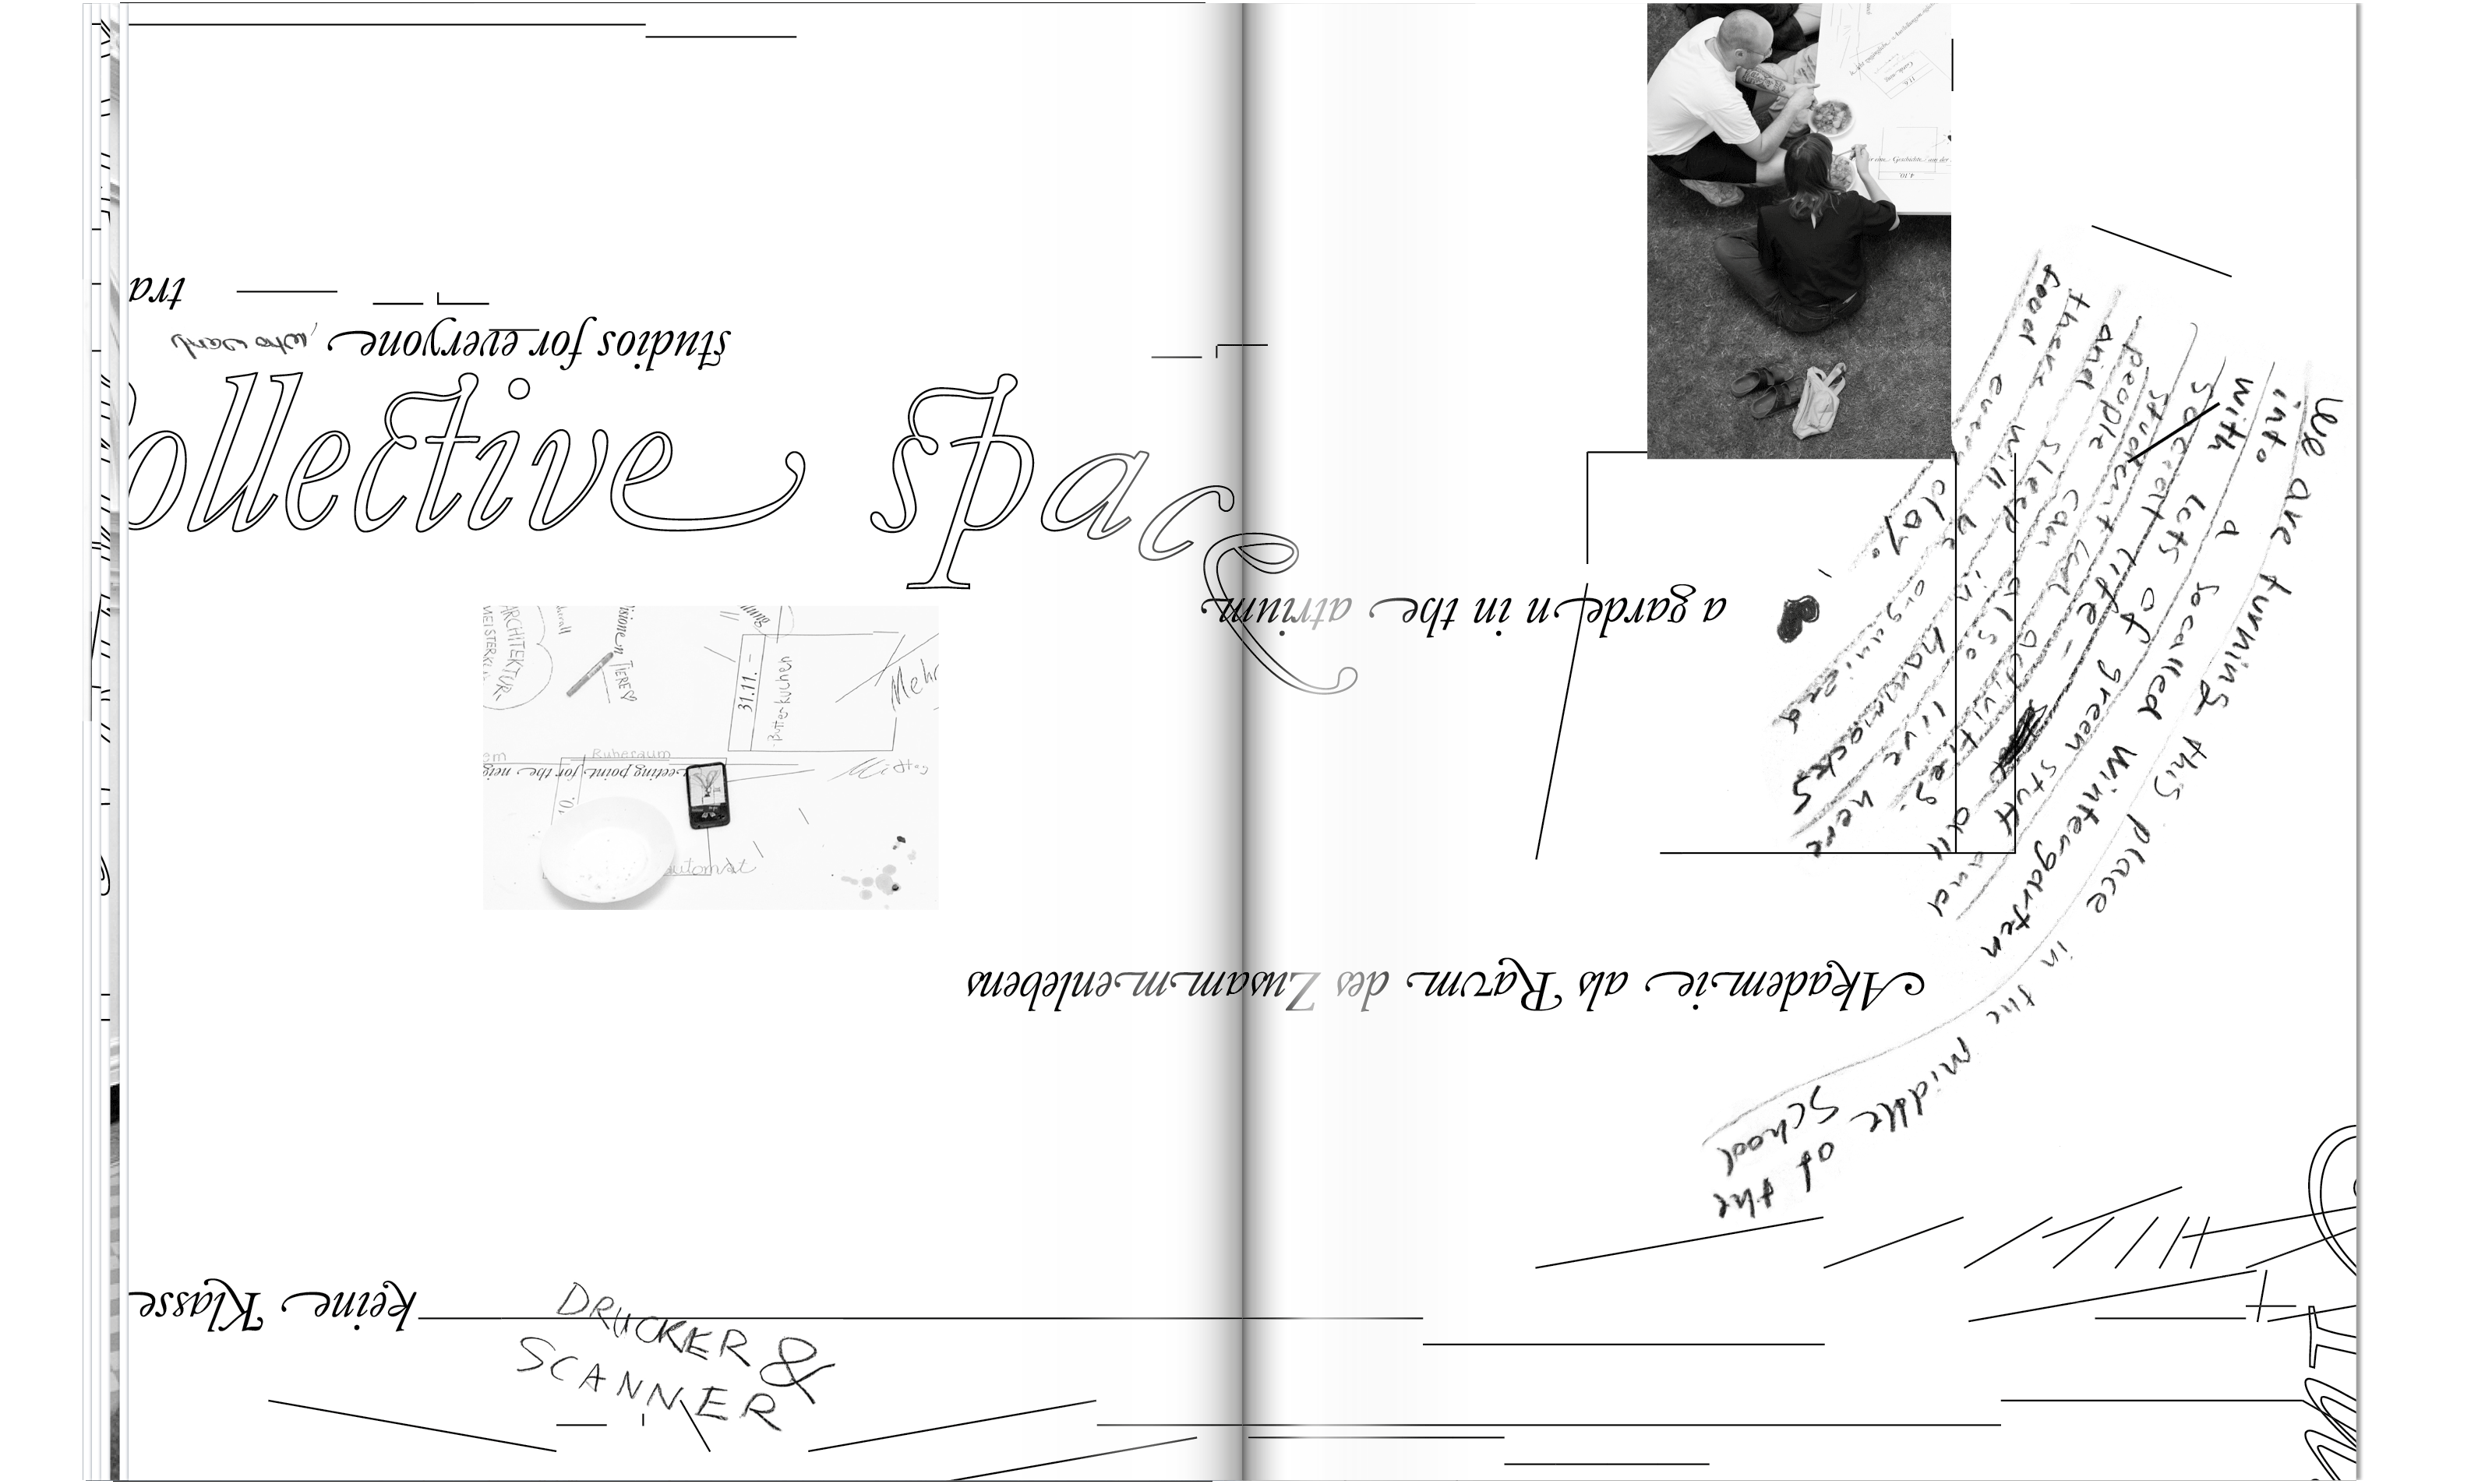 tra
studios for everyone, who want
ollective space
a garden in the atrium
Akademie als Raum des Zusammenlebens
keine Klasse
DRUCKER &
SCANNER
ARCHITEKTUR
TIERE
31.11. –
Butterkuchen
Mehr
Ruheraum
eeting point for the neig
10.
automat
4.10.
We are turning this place in the middle of the School
into a so called Wintergarten
with lots of green stuff and
Secret life – and
Student activities. all
people can also live here
and sleep in hammocks
there will be organized
food every day.